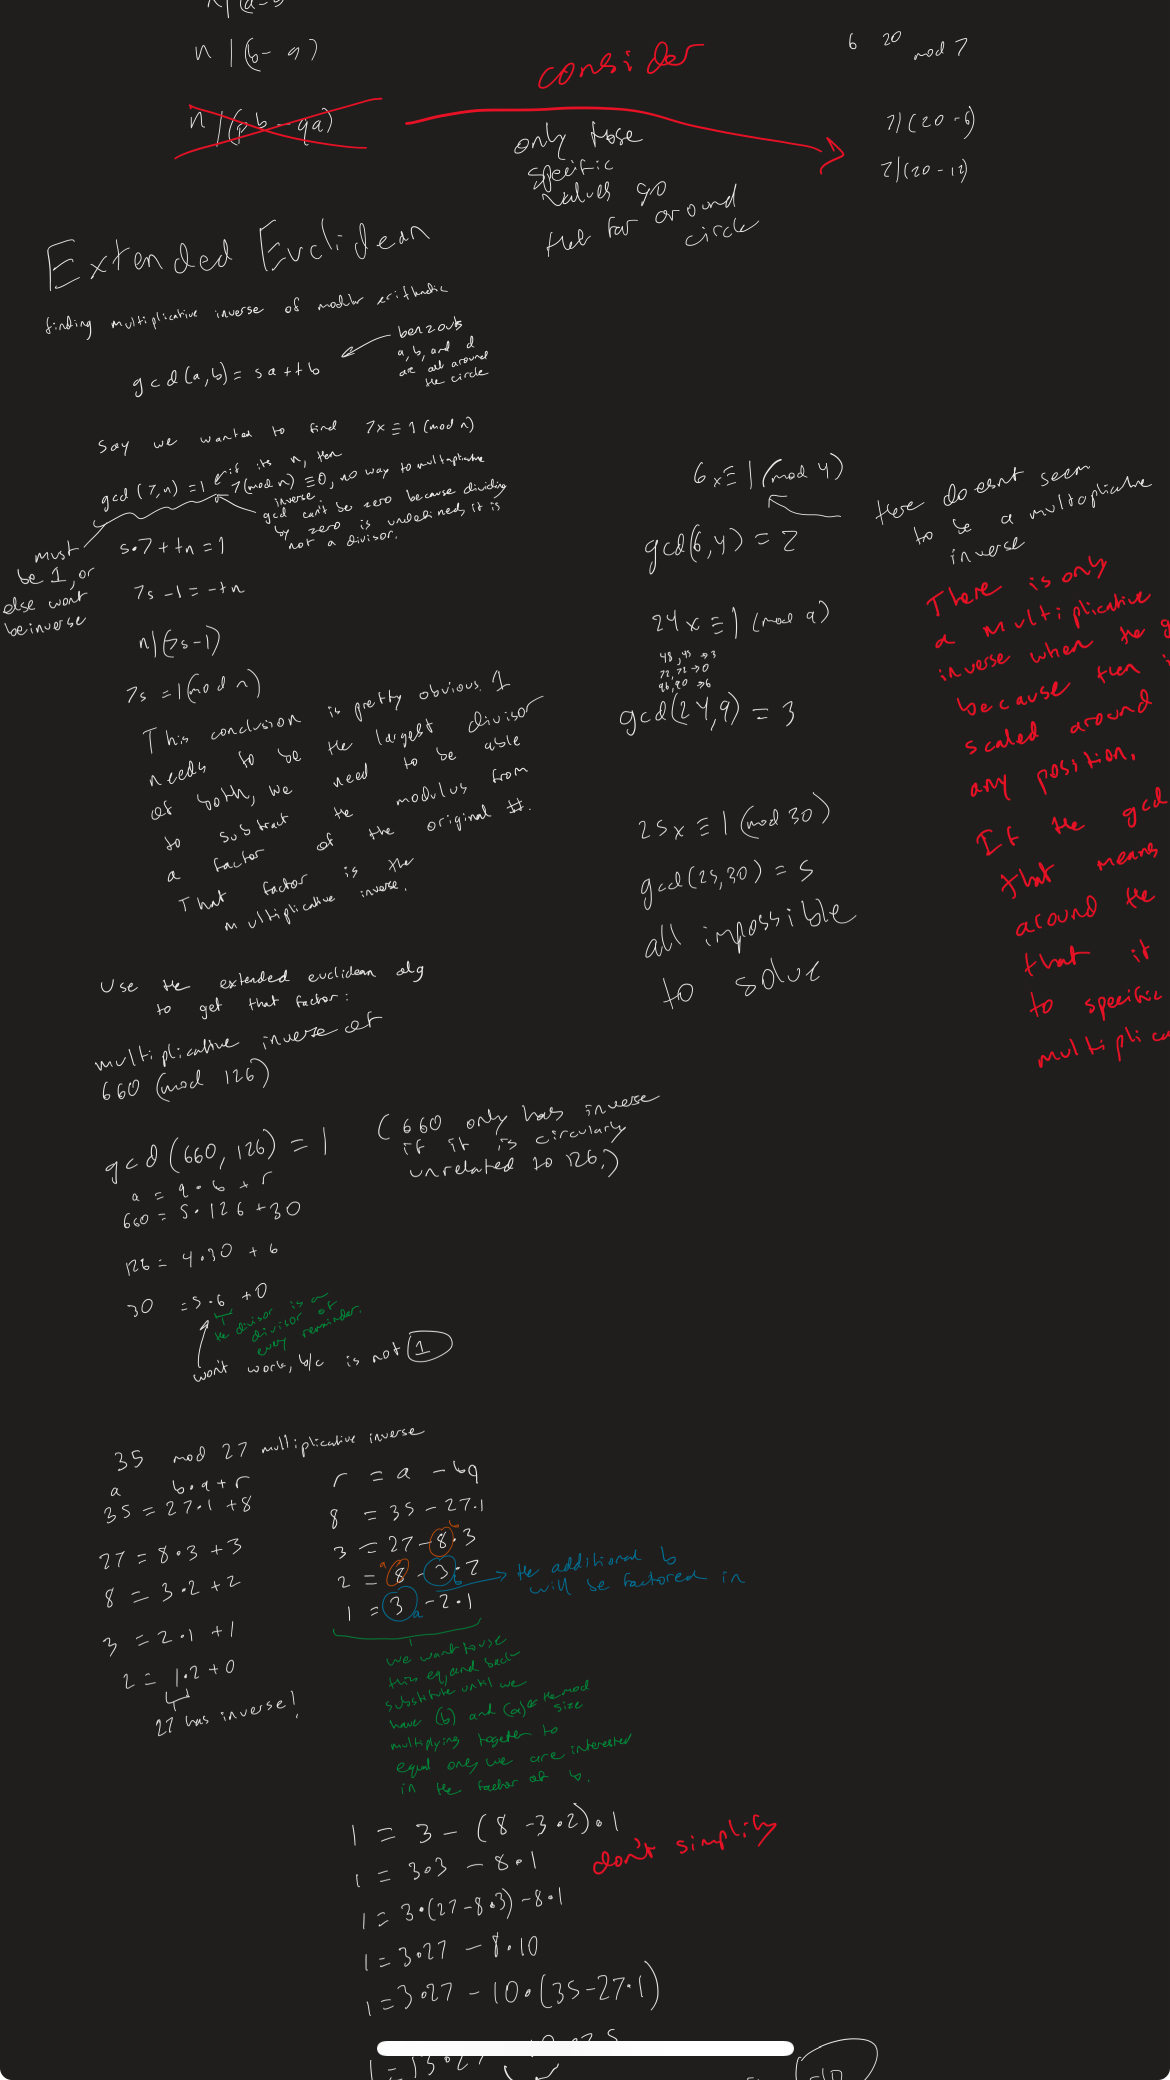 n | (b - a)
n | (pb - qa)
consider
only those
specific
values go
that far around
circle
6 20 mod 7
7|(20-6)
7|(20-12)
Extended Euclidean
finding multiplicative inverse of modular arithmetic
gcd(a,b) = sa + tb
benzouts
a, b, and d
are all around
the circle
Say we wanted to find 7x ≡ 1 (mod n)
gcd(7,n) = 1
if its n, then
7(mod n) ≡ 0, no way to multaplicative
inverse
gcd can't be zero because dividing
by zero is undefined, it is
not a divisor.
must
be 1, or
else wont
be inverse
s·7 + tn = 1
7s - 1 = -tn
n|(7s-1)
7s = 1(mod n)
This conclusion is pretty obvious. 1
needs to be the largest divisor
of both, we need to be able
to subtract the modulus from
a factor of the original #.
That factor is the
multiplicative inverse.
6x ≡ 1 (mod 4)
gcd(6,4) = 2
there doesnt seem
to be a multaplicative
inverse
24x ≡ 1 (mod 9)
48,45 → 3
72,72 → 0
96,90 → 6
gcd(24,9) = 3
25x ≡ 1 (mod 30)
gcd(25,30) = 5
all impossible
to solve
There is only
a multiplicative
inverse when the g
because then i
scaled around
any position.
If the gcd
that means
around the
that it
to specific
multiplica
Use the extended euclidean alg
to get that factor:
multiplicative inverse of
660 (mod 126)
gcd(660, 126) = 1
(660 only has inverse
if it is circularly
unrelated to 126.)
a = q·b + r
660 = 5·126 + 30
126 = 4·30 + 6
30 = 5·6 + 0
the divisor is a
divisor of
every remainder.
won't work, b/c is not 1
35 mod 27 multiplicative inverse
a b·q + r
35 = 27·1 + 8
27 = 8·3 + 3
8 = 3·2 + 2
3 = 2·1 + 1
2 = 1·2 + 0
27 has inverse!
r = a - bq
8 = 35 - 27·1
3 = 27 - 8·3
b
2 = 8 - 3·2
a b
1 = 3 - 2·1
a
the additional b
will be factored in
we want to use
this eq, and back
substitute until we
have (b) and (a) of the mod
size
multiplying together to
equal one, we are interested
in the factor of b.
1 = 3 - (8 - 3·2)·1
don't simplify
1 = 3·3 - 8·1
1 = 3·(27 - 8·3) - 8·1
1 = 3·27 - 8·10
1 = 3·27 - 10·(35 - 27·1)